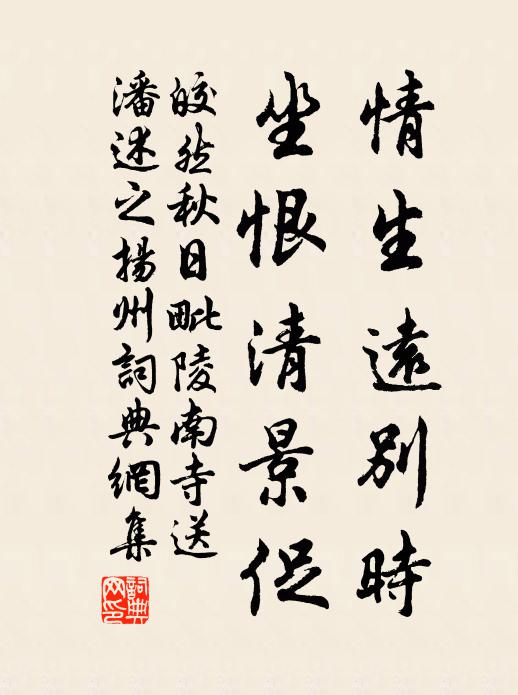 情生遠別時
坐恨清景促
皎然秋日毗陵南寺送
潘述之揚州詞典網集
詞典网印